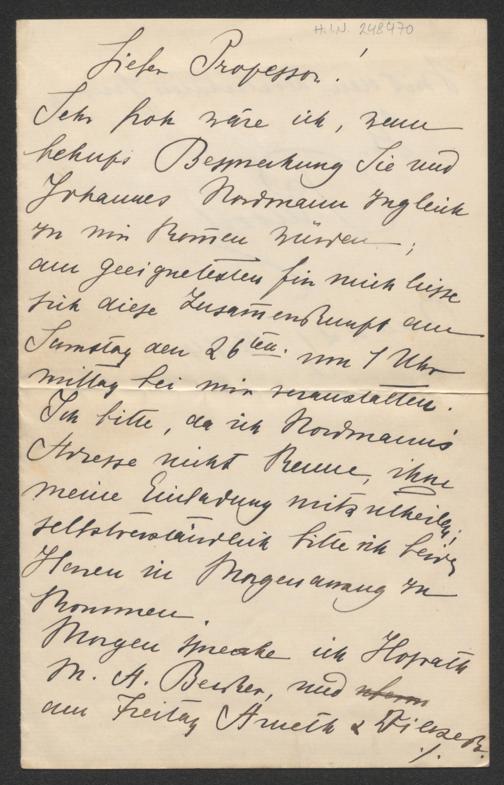 H.I.N. 248470
Lieber Professor!
Sehr froh wäre ich, wenn
behufs Besprechung Sie und
Johannes Nordmann zugleich
zu mir kom̄en würden;
am geeignetesten für mich liesse
sich diese Zusam̄enkunft am
Samstag den 26ten. um 1 Uhr
mittag bei mir veranstalten.
Ich bitte, da ich Nordmann's
Adresse nicht kenne, ihm
meine Einladung mitzutheilen;
selbstverständlich bitte ich beide
Herren in Morgenanzug zu
kommen.
Morgen spreche ich Hofrath
M. A. Becker, und
am Freitag Arneth & Wilczek.
./.